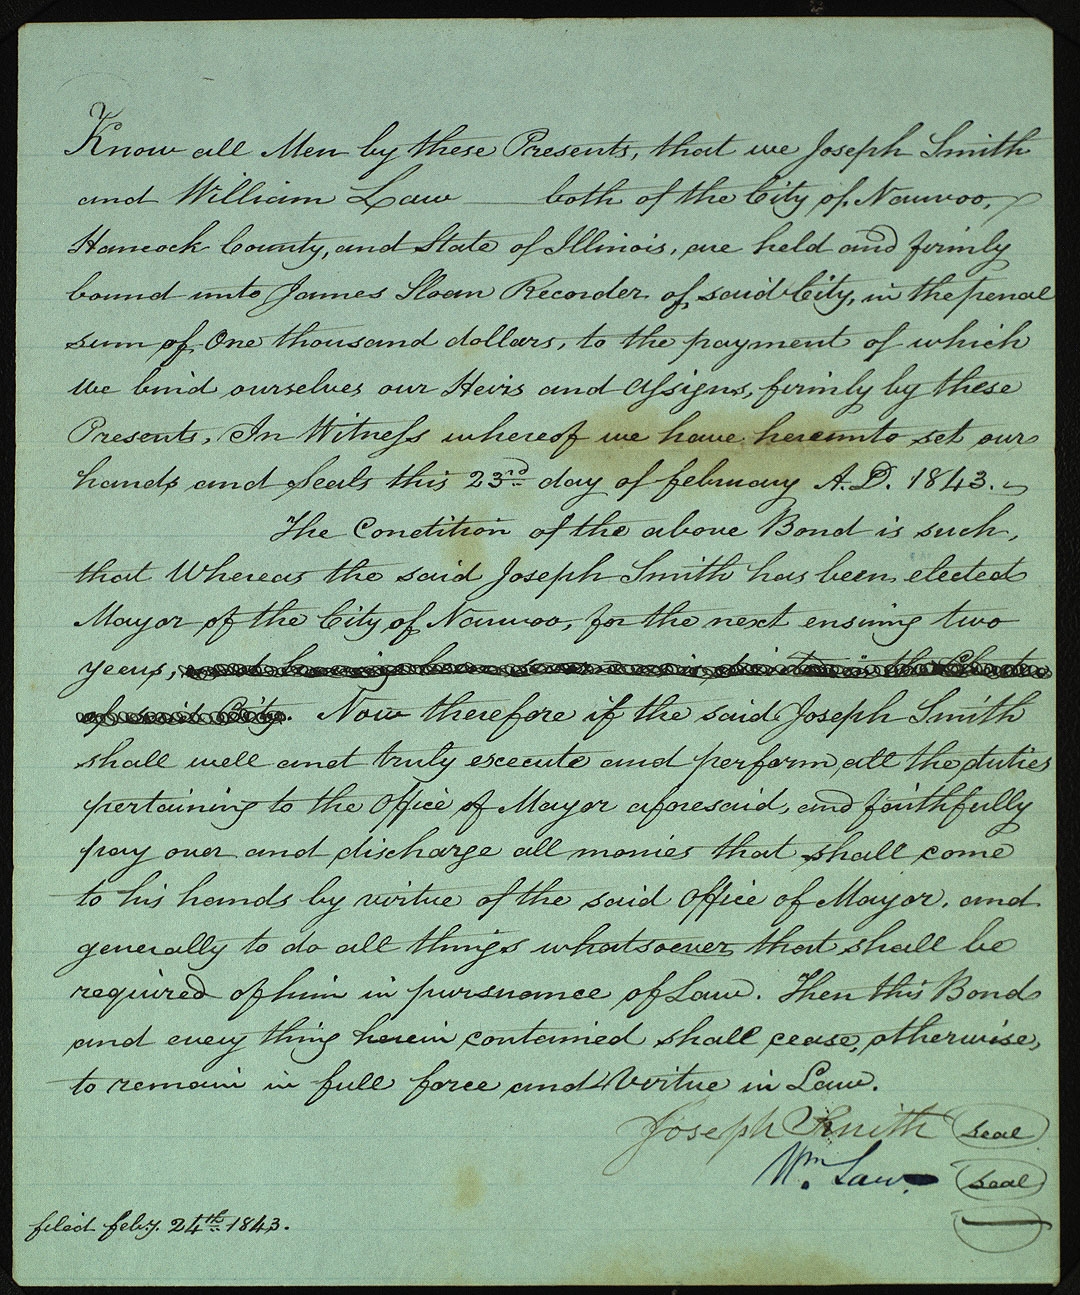 Know all Men by these Presents, that we Joseph Smith
and William Law both of the City of Nauvoo,
Hancock County, and State of Illinois, are held and firmly
bound unto James Sloan Recorder of said City, in the penal
sum of One thousand dollars, to the payment of which
We bind ourselves our Heirs and Assigns, firmly by these
Presents, In Witness whereof we have hereunto set our
hands and Seals this 23rd day of february A.D. 1843.
The Condition of the above Bond is such,
that Whereas the said Joseph Smith has been elected
Mayor of the City of Nauvoo, for the next ensuing two
years,
of said City. Now therefore if the said Joseph Smith
shall well and truly execute and perform all the duties
pertaining to the Office of Mayor aforesaid, and faithfully
pay over and discharge all monies that shall come
to his hands by virtue of the said Office of Mayor, and
generally to do all things whatsoever that shall be
required of him in pursuance of Law. Then this Bond
and every thing herein contained shall cease, otherwise,
to remain in full force and Virtue in Law.
Joseph Smith seal
Wm. Law. seal
filed feby. 24th 1843.